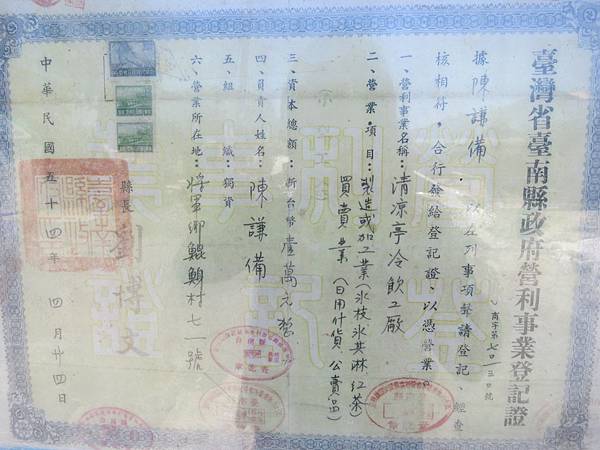 臺灣省臺南縣政府營利事業登記證
南字第七〇三〇號
據陳謙備 以左列事項聲請登記、經查
核相符，合行發給登記證、以憑營業。
一、營利事業名稱：清凉亭冷飲工廠
二、營業項目：製造或加工業（氷枝氷其淋紅茶）
買賣業（日用什貨、公賣品）
三、資本總額：新台幣壹萬元整
四、負責人姓名：陳謙備
五、組織：獨資
六、營業所在地：將軍鄉鯤鯓村七一號
縣長 劉博文
中華民國五十四年 四月廿四日